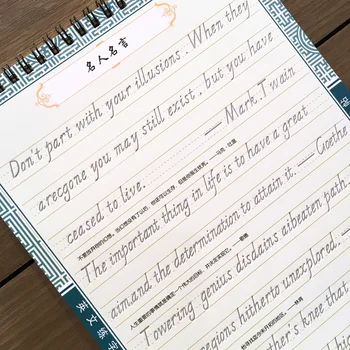 名人名言
Don't part with your illusions . When they
arecgone you may still exist , but you have
ceased to live. —— Mark.T wain
The important thing in life is to have a great
aim,and the determination to attain it. — Goethe
Towering genius disdains aibeaten path.
regions hitherto unexplored. —
ther's knee that
英文练字